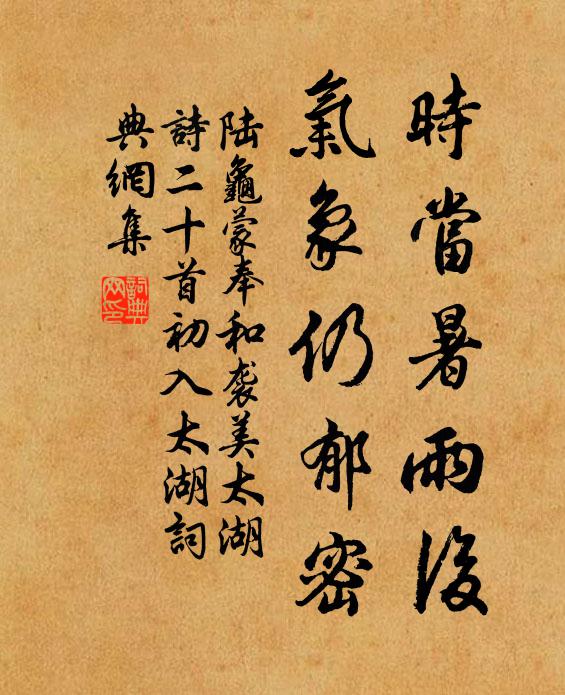 時當暑雨後
氣象仍郁密
陸龜蒙奉和袭美太湖
詩二十首初入太湖詞
典網集
詞典网印